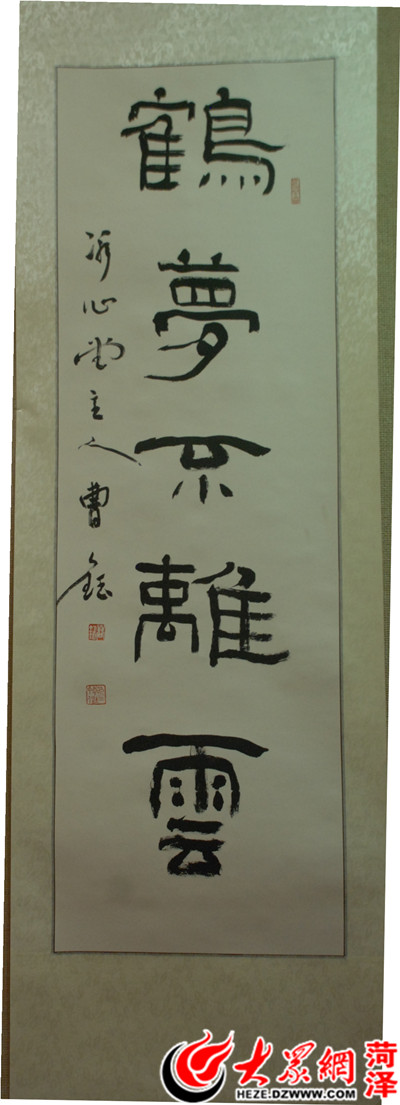 鶴夢不離雲
心堂主人曹鈺
大眾網 菏泽
HEZE.DZWWW.COM